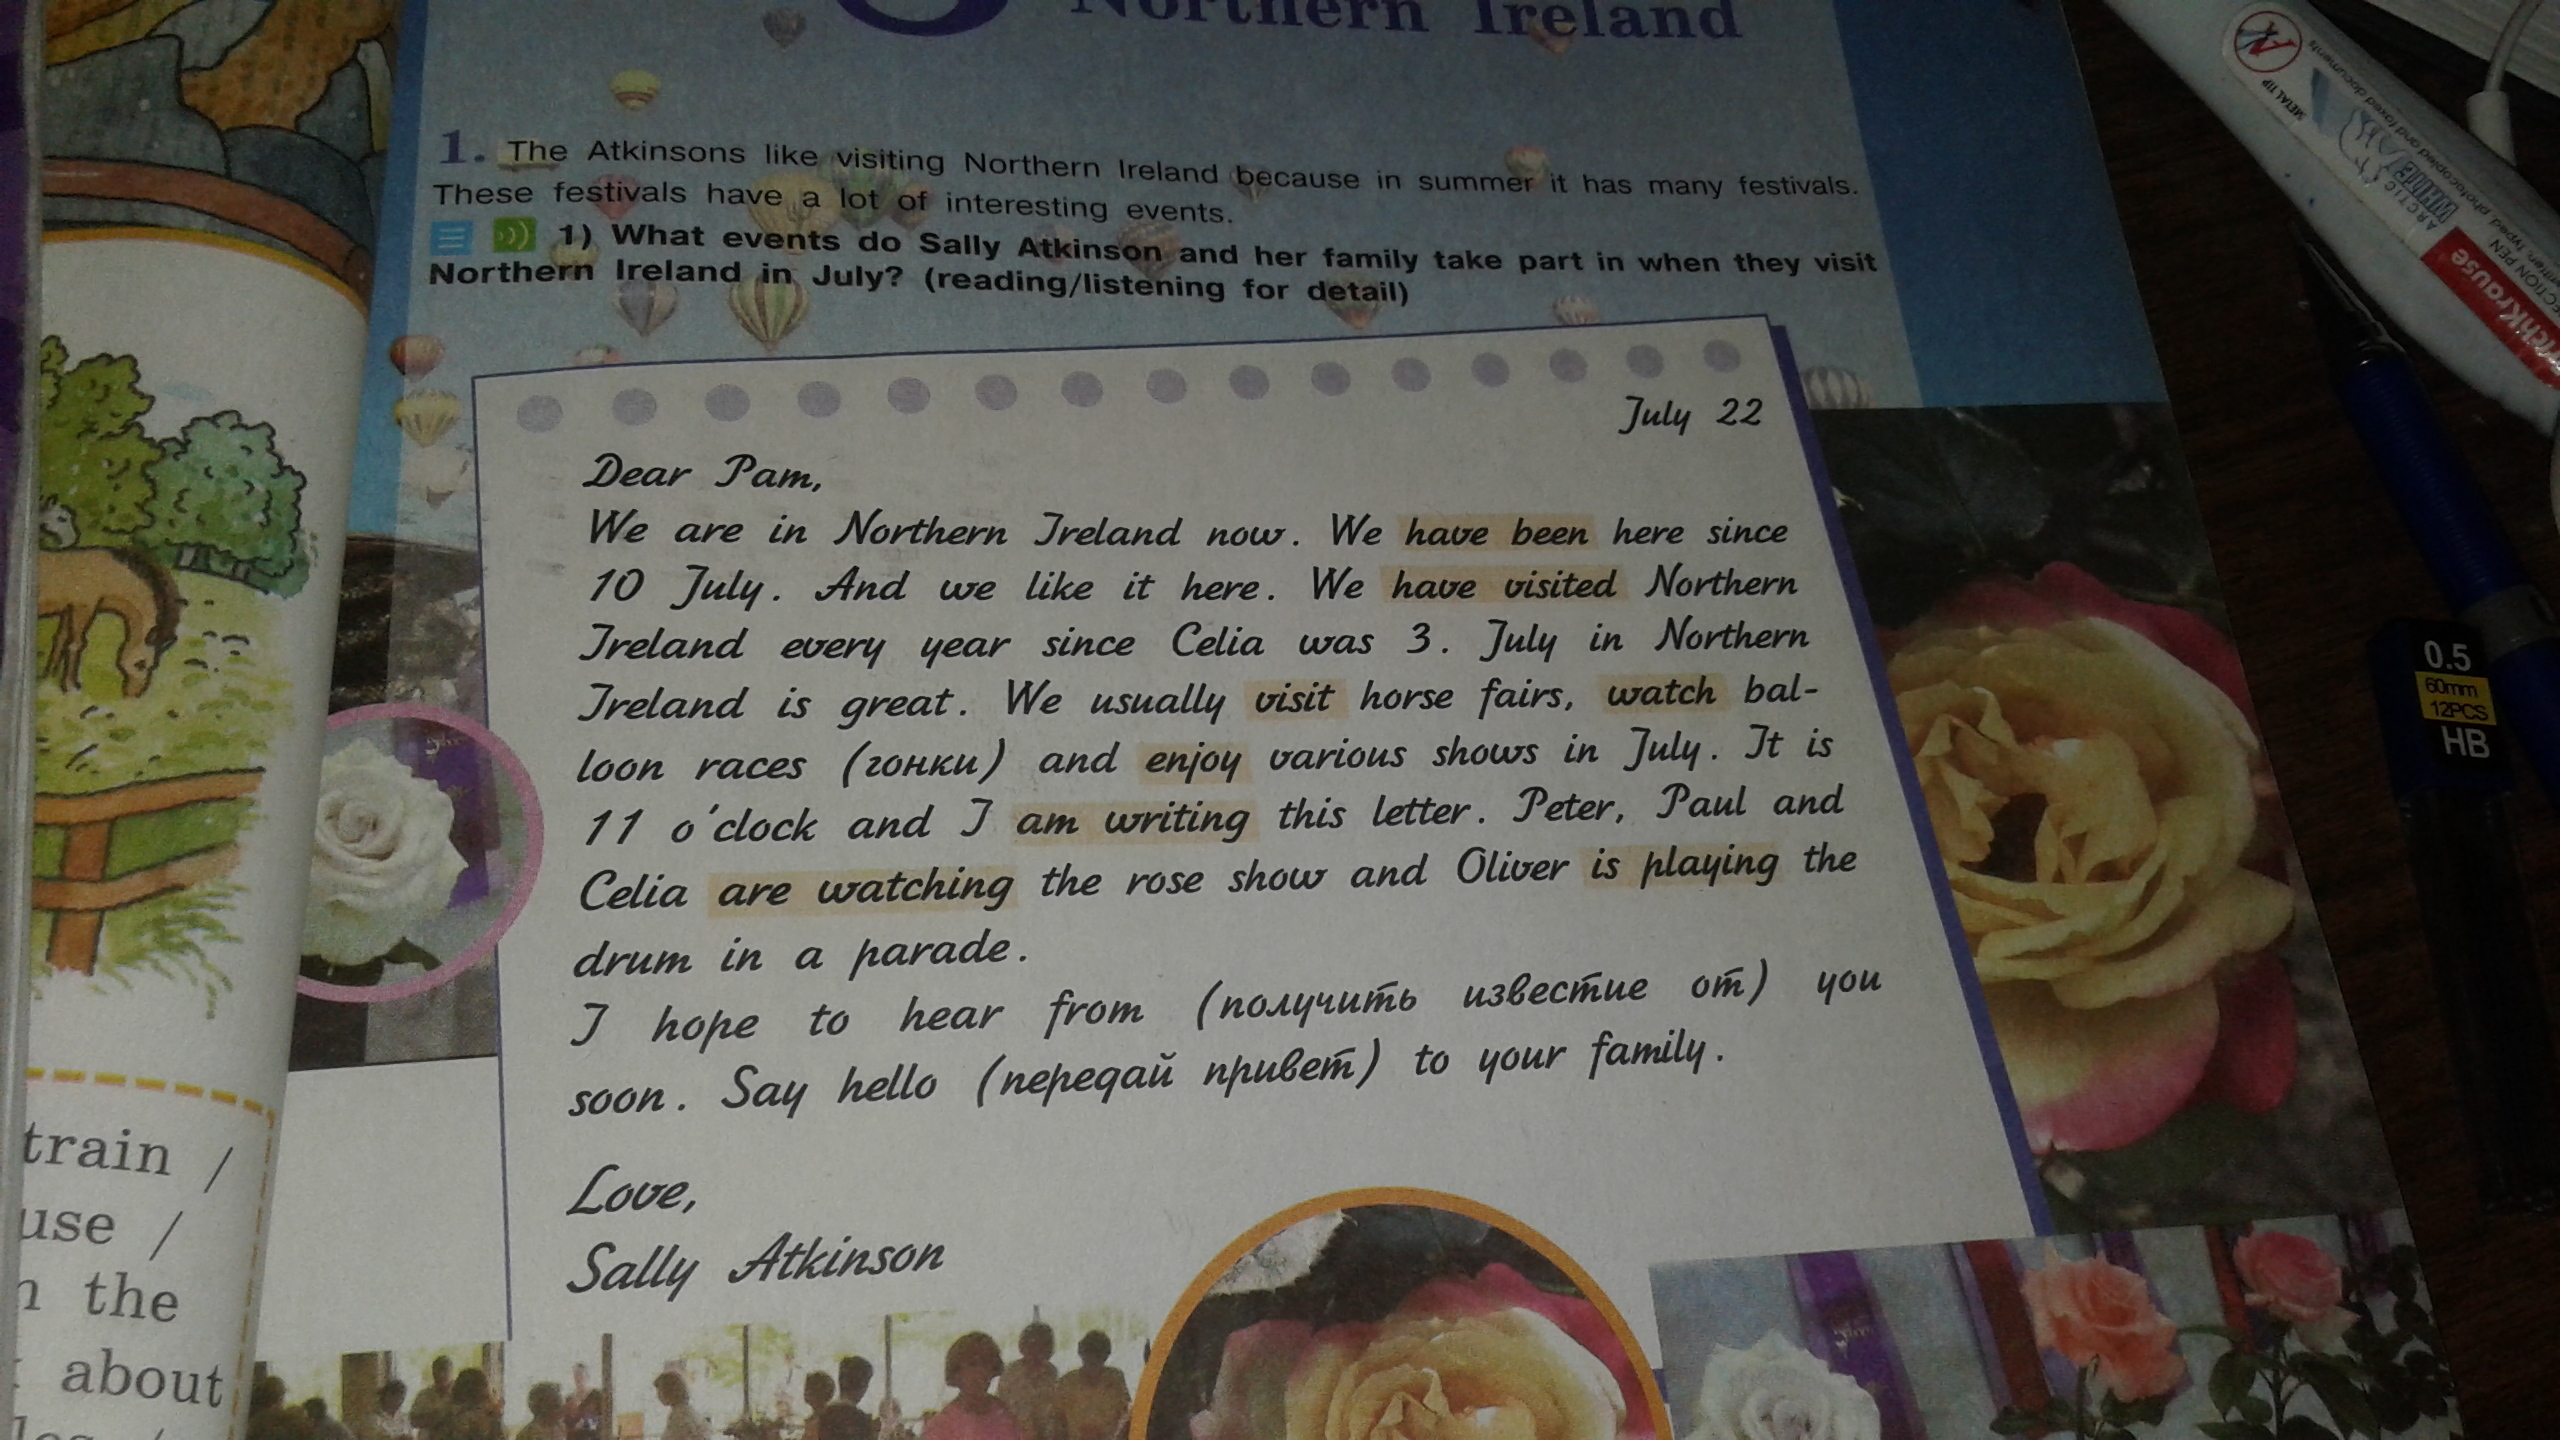 Northern Ireland
1. The Atkinsons like visiting Northern Ireland because in summer it has many festivals.
These festivals have a lot of interesting events.
1) What events do Sally Atkinson and her family take part in when they visit
Northern Ireland in July? (reading/listening for detail)
July 22
Dear Pam,
We are in Northern Ireland now. We have been here since
10 July. And we like it here. We have visited Northern
Ireland every year since Celia was 3. July in Northern
Ireland is great. We usually visit horse fairs, watch bal-
loon races (гонки) and enjoy various shows in July. It is
11 o'clock and I am writing this letter. Peter, Paul and
Celia are watching the rose show and Oliver is playing the
drum in a parade.
I hope to hear from (получить известие от) you
soon. Say hello (передай привет) to your family.
Love,
Sally Atkinson
train /
use /
the
about
METAL TIP
ARCTIC
WHITE
0.5
60mm
12PCS
HB